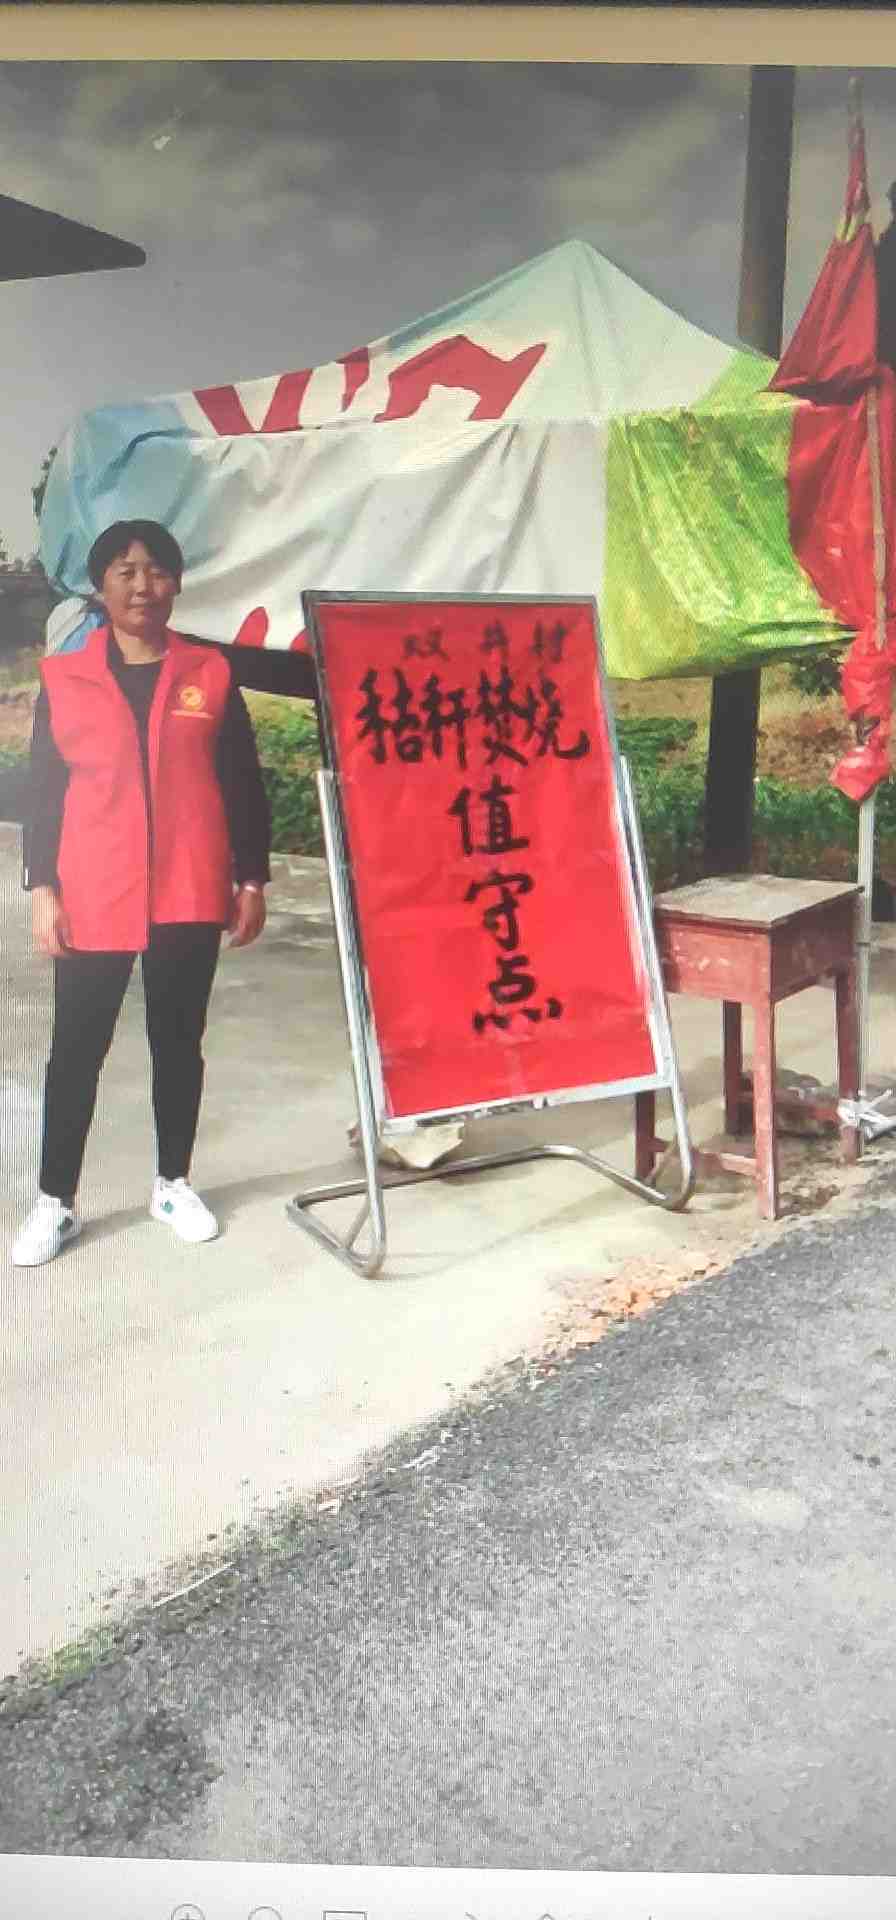 双井村
秸秆焚烧
值
守
点